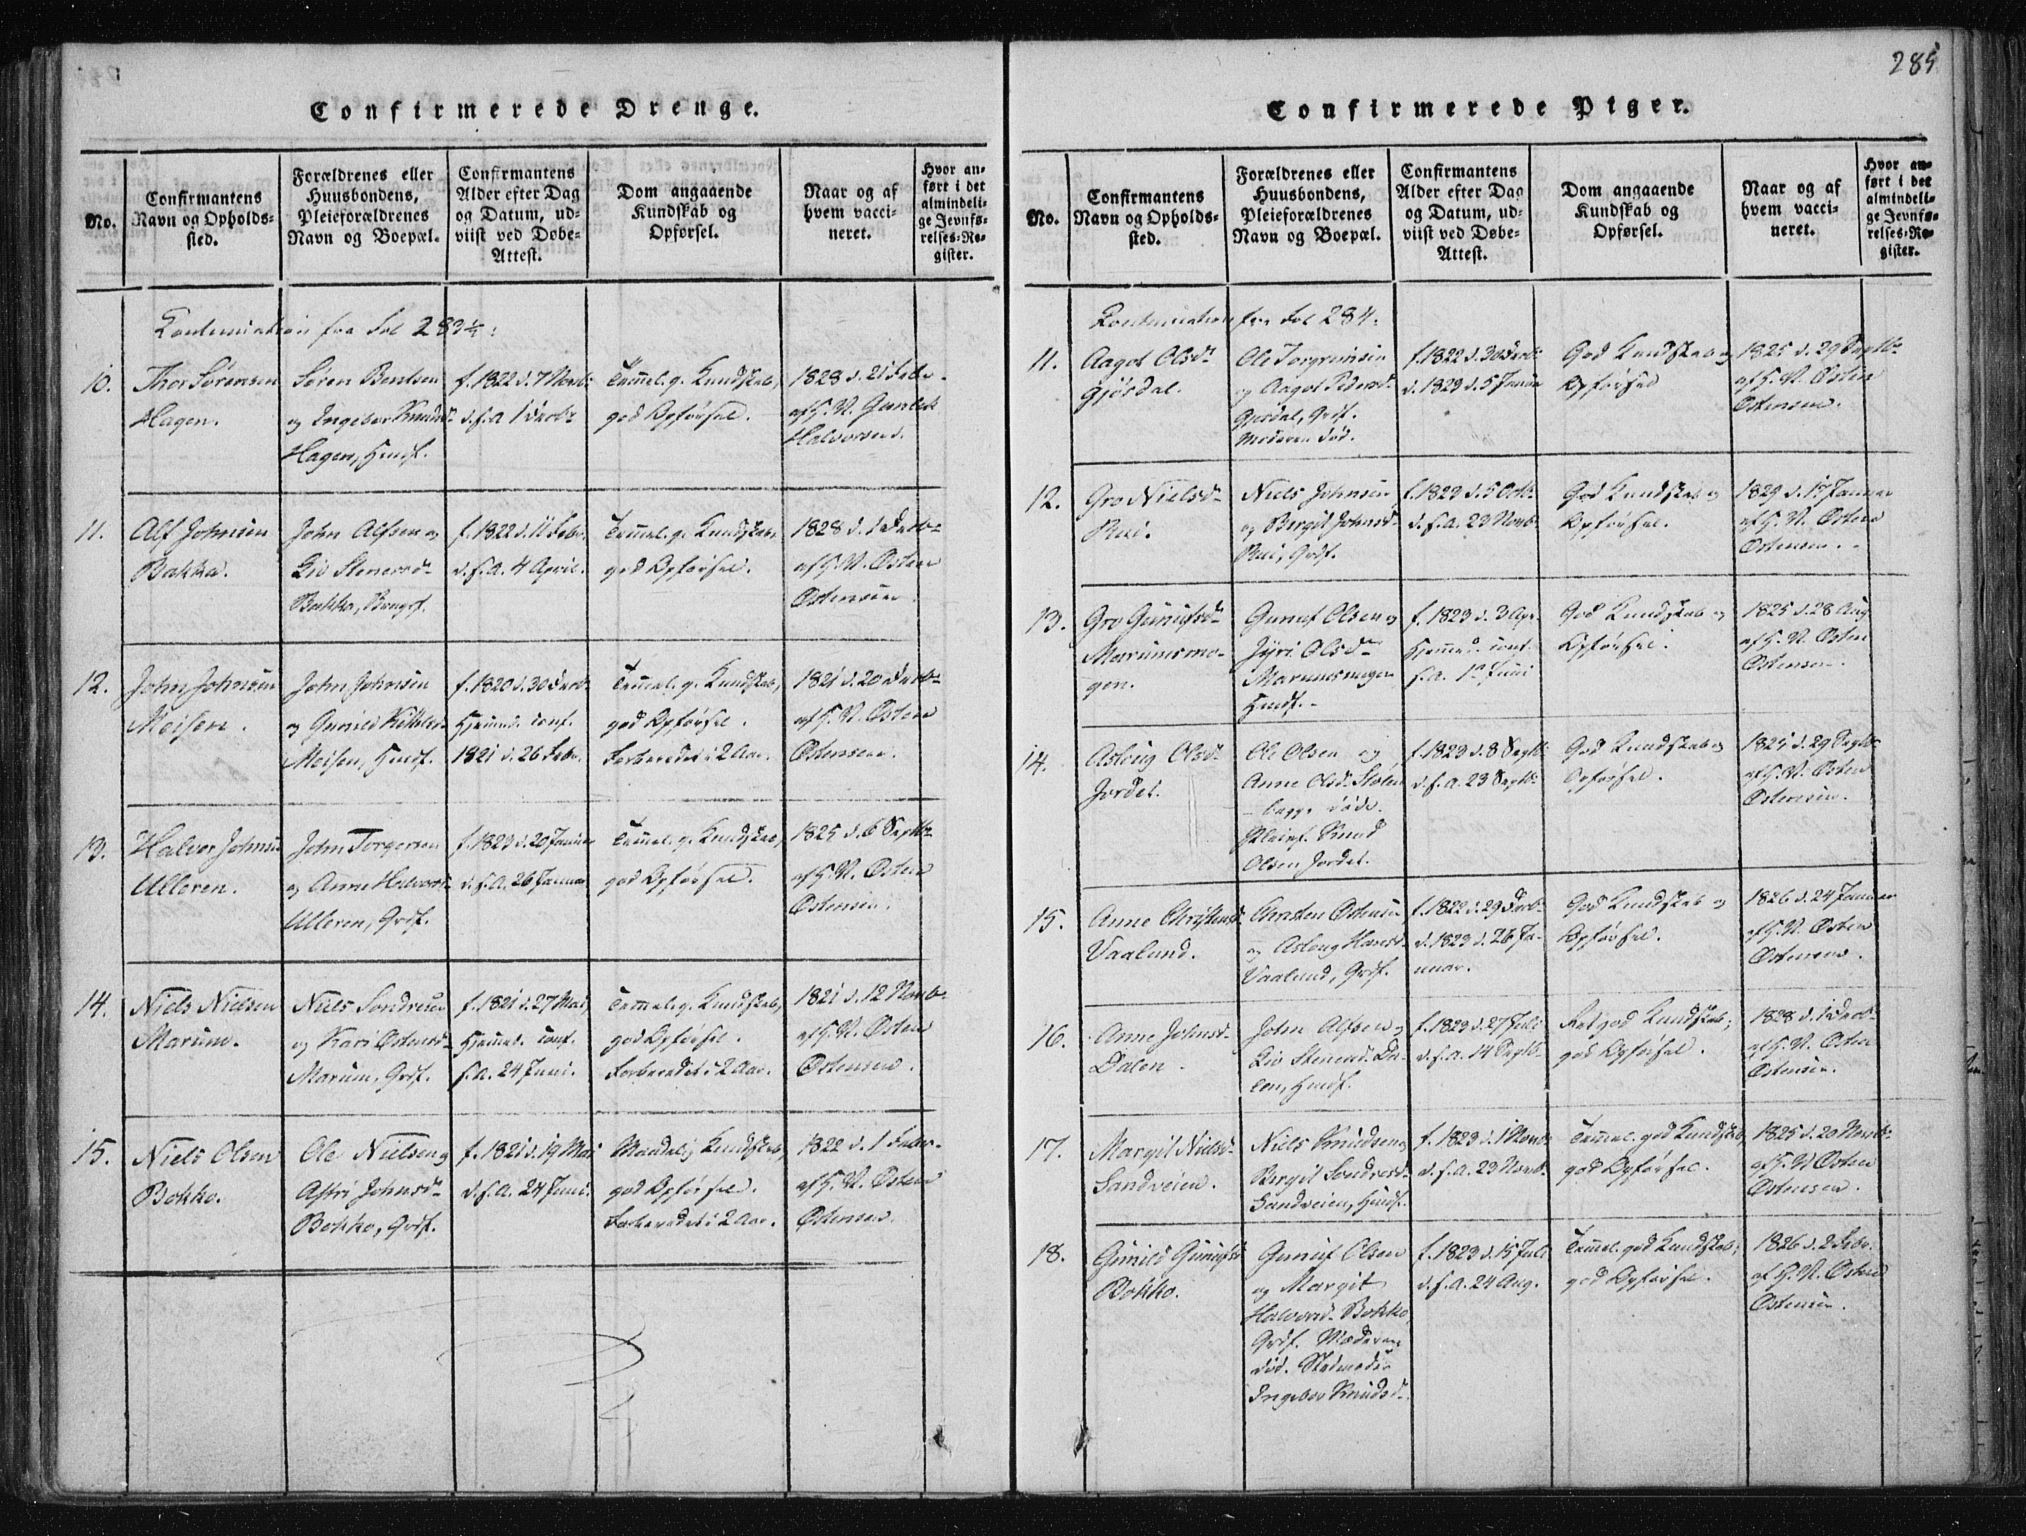 285
Confirmerede Drenge.
No.
Confirmantens
Navn og Opholds-
sted.
Forældrenes eller
Huusbondens,
Pleieforældrenes
Navn og Boepæl.
Confirmantens
Alder efter Dag
og Datum, ud-
viist ved Døbe-
Attest.
Dom angaaende
Kundskab og
Opførsel.
Naar og af
hvem vacci-
neret.
Hvor an-
ført i det
almindeli-
ge Jevnfø-
relses-Re-
gister.
Kontinuation fra Fol 283½:
10.
Thor Sørensen
Hagen.
Søren Bentsen
og Ingebor Knudsd-
Hagen, Huusf.
f. 1822 d. 7 Novb:
d. s. A. 1 Decbr
Temmel. g. Kundskab,
god Opførsel.
1828 d. 21 Febr.
af H. N. Gunlek
Halvorsen.
11.
Alf Johnsen
Bakka.
John Alfsen og
Liv Stenersd-
Bakka,
f. 1822 d. 11 Febr.
d. s. A. 4 April.
Temmel. g. Kundskab,
god Opførsel.
1828 d. 1 Decbr
af H. N. Østen
Østensen.
12.
John Johnsen
Meisen.
John Johnsen
og Gunild Kittilsd-
Meisen, Huusf.
f. 1820 d. 30 Decb.
Hjemmed. conf.
1821 d. 26 Febr.
Temmel. g. Kundskab,
god Opførsel.
Forberedet i 2 Aar.
1821 d. 20 Decbr
af H. N. Østen
Østensen.
13.
Halvor Johnsen
Ulleren.
John Torgersen
og Anne Halvorsd-
Ulleren, Grdf.
f. 1823 d. 20 Januar
d. s. A. 26 Januar.
Temmel. g. Kundskab,
god Opførsel.
1825 d. 6 Septbr
af H. N. Østen
Østensen.
14.
Niels Nielsen
Marum.
Niels Sondresen
og Kari Østensd-
Marum, Grdf.
f. 1821 d. 27 Mai,
Hjemmed. conf.
s. A. 24 Juni.
Temmel. g. Kundskab,
god Opførsel.
Forberedet i 2 Aar.
1821 d. 12 Novb.
af H. N. Østen
Østensen.
15.
Niels Olsen
Bokko.
Ole Nielsen og
Astri Johnsd-
Bokko, Grdf.
f. 1821 d. 19 Mai
d. s. A. 24 Juni.
Maadelig Kundskab,
god Opførsel.
Forberedet i 2 Aar.
1822 d. 1 Febr.
af H. N. Østen
Østensen.
Confirmerede Piger.
No.
Confirmantens
Navn og Opholds-
sted.
Forældrenes eller
Huusbondens,
Pleieforældrenes
Navn og Boepæl.
Confirmantens
Alder efter Dag
og Datum, ud-
viist ved Døbe-
Attest.
Dom angaaende
Kundskab og
Opførsel.
Naar og af
hvem vacci-
neret.
Hvor an-
ført i det
almindeli-
ge Jevnfø-
relses-Re-
gister.
Kontinuation fra Fol 284:
11.
Aagot Olsdr
Gjøsdal.
Ole Torgrimsen
og Aagot Pedersd-
Gjøsdal, Grdf.
Moderen død.
f. 1822 d. 30 Decbr
d. 1823 d. 5 Januar
God Kundskab og
Opførsel
1825 d. 29 Septbr
af H. N. Østen
Østensen.
12.
Gro Nielsdr
Rui.
Niels Johnsen
og Birgit Johnsd-
Rui, Grdf.
f. 1823 d. 5 Octb.
d. s. A. 23 Novb.
God Kundskab og
Opførsel.
1829 d. 17 Januar
af H. N. Østen
Østensen.
13.
Gro Gunufsdr
Marumsmo-
gen.
Gunuf Olsen og
Jyri Olsdr
Marumsmogen
Huusf.
f. 1823 d. 3 Apr.
Hjemmed. conf.
s. A. 1 Juni
God Kundskab og
Opførsel.
1825 d. 28 Aug
af H. N. Østen
Østensen.
14.
Asloug Olsdr
Jordet.
Ole Olsen og
Anne Olsd. Stolen-
døde.
Pleief. Knud
Olsen Jordet.
f. 1823 d. 8 Septb.
d. s. A. 23 Septb.
God Kundskab og
Opførsel.
1825 d. 29 Septbr
af H. N. Østen
Østensen.
15.
Anne Christensd-
Vaalund.
Christen Østensen
og Asloug Hansd-
Vaalund, Grdf.
f. 1822 d. 29 Decb.
d. 1823 d. 26 Ja-
nuar.
God Kundskab og
Opførsel.
1826 d. 24 Januar
af H. N. Østen
Østensen.
16.
Anne Johnsd-
Dalen.
John Alfsen og
Liv Stenersd. Da-
len, Huusf.
f. 1823 d. 27 Juli
d. s. A. 14 Septb.
Ret god Kundskab,
god Opførsel.
1828 d. 1 Decb.
af H. N. Østen
Østensen.
17.
Margit Nielsd-
Sandveien.
Niels Knudsen og
Birgit Sondresd-
Sandveien, Huusf.
f. 1823 d. 1 Novb.
d. s. A. 23 Novb.
Temmel. god Kundskab,
god Opførsel.
1825 d. 20 Novb.
af H. N. Østen
Østensen.
18.
Gunild Gunufsd-
Bokko.
Gunuf Olsen
og Margit
Halvorsd. Bokko,
Grdf. Moderen
død. Stedmoder
Ingebor Knudsd-
f. 1823 d. 15 Juli
d. s. A. 24 Aug.
Temmel. god Kundskab,
god Opførsel.
1826 d. 2 Febr.
af H. N. Østen
Østensen.